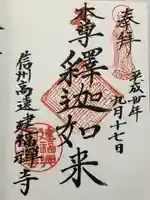 奉拝
平成卅年九月十七日
本尊釋迦如来
信州高遠建福禅寺